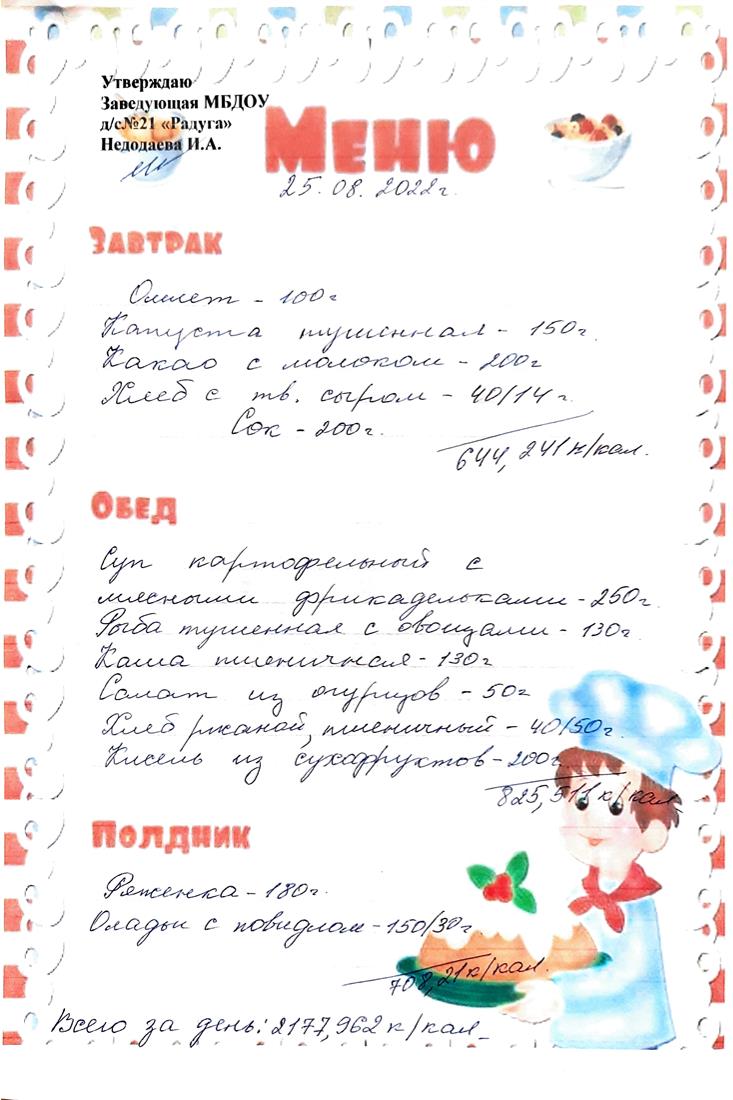 Утверждаю
Заведующая МБДОУ
д/с№21 «Радуга»
Недодаева И.А.
Меню
25.08.2022г.
Завтрак
Омлет - 100г
Капуста тушенная - 150г.
Какао с молоком - 200г
Хлеб с тв. сыром - 40/14 г.
Сок - 200г.
644,241к/кал.
Обед
Суп картофельный с
мясными фрикадельками - 250г.
Рыба тушенная с овощами - 130г.
Каша пшеничная - 130г
Салат из огурцов - 50г
Хлеб ржаной, пшеничный - 40/50г.
Кисель из сухофруктов - 200г.
825,511к/кал
Полдник
Ряженка - 180г.
Оладьи с повидлом - 150/30г.
708,21к/кал.
Всего за день: 2177,962к/кал